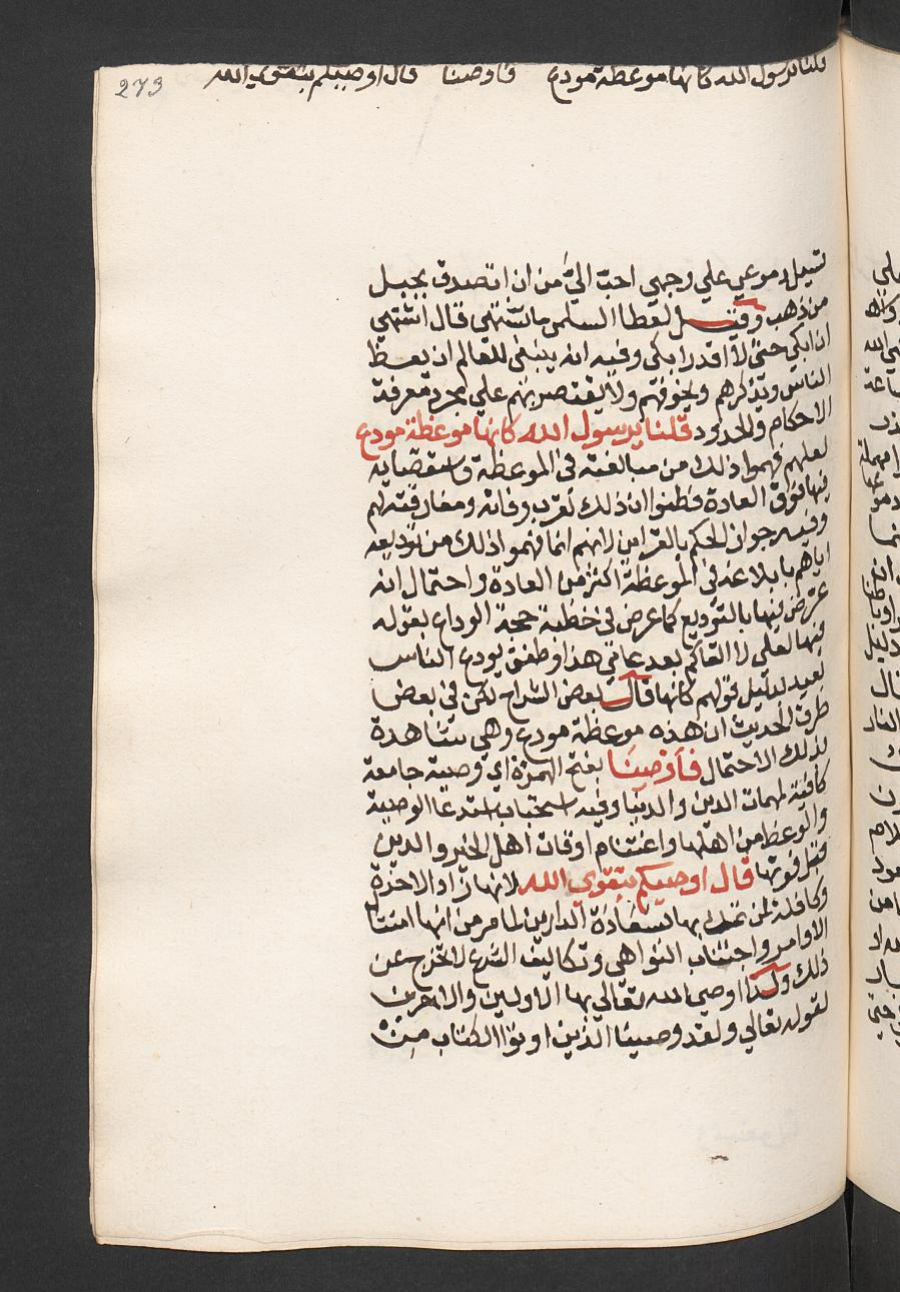 قلنا يرسول الله كانها موعظة مودع فاوصنا قال اوصيكم بتقوي الله
273
تسيل دموعي علي وجهي احبّ اليّ من ان اتصدق بجبل
من ذهب وقيل لعطا السلمى ما تشتهي قال اشتهي
ان ابكي حتى لا اقدر ابكى وفيه انه ينبغى للعالم ان يعظ
الناس ويذكرهم ويخوفهم ولا يقتصر بهم علي مجرد معرفة
الاحكام والحدود قلنا يرسول الله كانها موعظة مودع
لعلهم فهموا ذلك من مبالغته في الموعظة واستقصايه
فيها فوق العادة فظنوا ان ذلك لقرب وفاته ومفارقته لهم
وفيه جواز الحكم بالقراين لانهم انما فهموا ذلك من توديعه
اياهم بابلاغه في الموعظة اكثر من العادة واحتمال انه
عرّض فيها بالتوديع كما عرض في خطبة حجة الوداع بقوله
فيها لعلي لا القاكم بعد عامي هذا وطفق يودع الناس
بعيد لدليل قولهم كانها قال بعض الشراح لكن في بعض
طرق الحديث ان هذه موعظة مودع وهي شاهدة
لذلك الاحتمال فأوصينا بفتح الهمزة اي وصية جامعة
كافية لمهمات الدين والدنيا وفيه استحباب استدعا الوصية
والوعظ من اهلها واغتنام اوقات اهل الخير والدين
قبل فوتها قال اوصيكم بتقوي الله لانها زاد الاخرة
وكافلة لمن تمسك بها لسعادة الدارين لما مر من انها امتثال
الاوامر واجتناب النواهي وتكاليف الشرع لا تخرج عن
ذلك ولذا اوصى الله تعالي بها الاولين والاخرين
لقوله تعالي ولقد وصينا الذين اوتوا الكتاب من